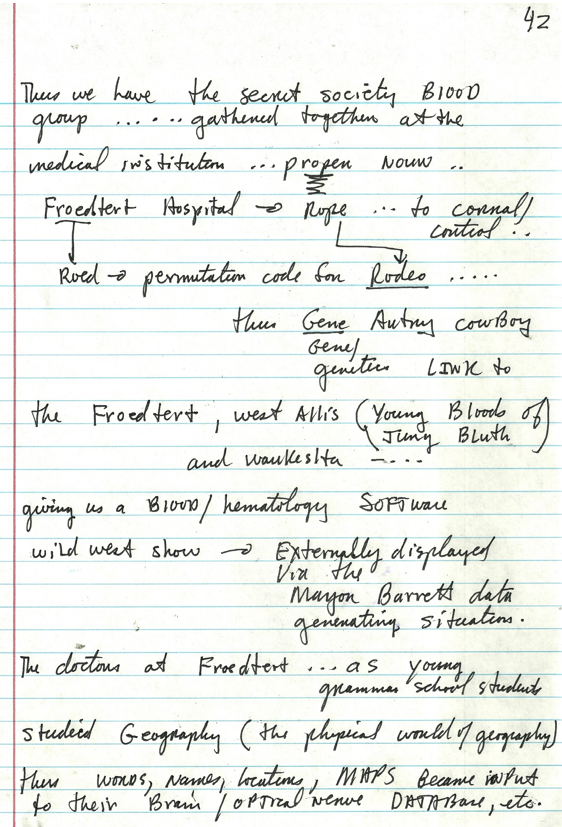 42
Thus we have the secret society Blood
group ...... gathered together at the
medical institution ... proper noun ..
Froedtert Hospital → Rope ... to corral/
control ..
Roed → permutation code for Rodeo .....
thus Gene Autry cowBoy
Gene/
genetics LINK to
the Froedtert, west Allis (Young Bloods of
Jung Bluth)
and waukesha -....
giving us a Blood/hematology SOFTware
wild west show → Externally displayed
Via the
Mayor Barrett data
generating situation.
The doctors at Froedtert ... as young
grammar school students
studied Geography (the physical world of geography)
thus words, names, locations, MAPS Became input
to their Brain / optical nerve DATABase, etc.